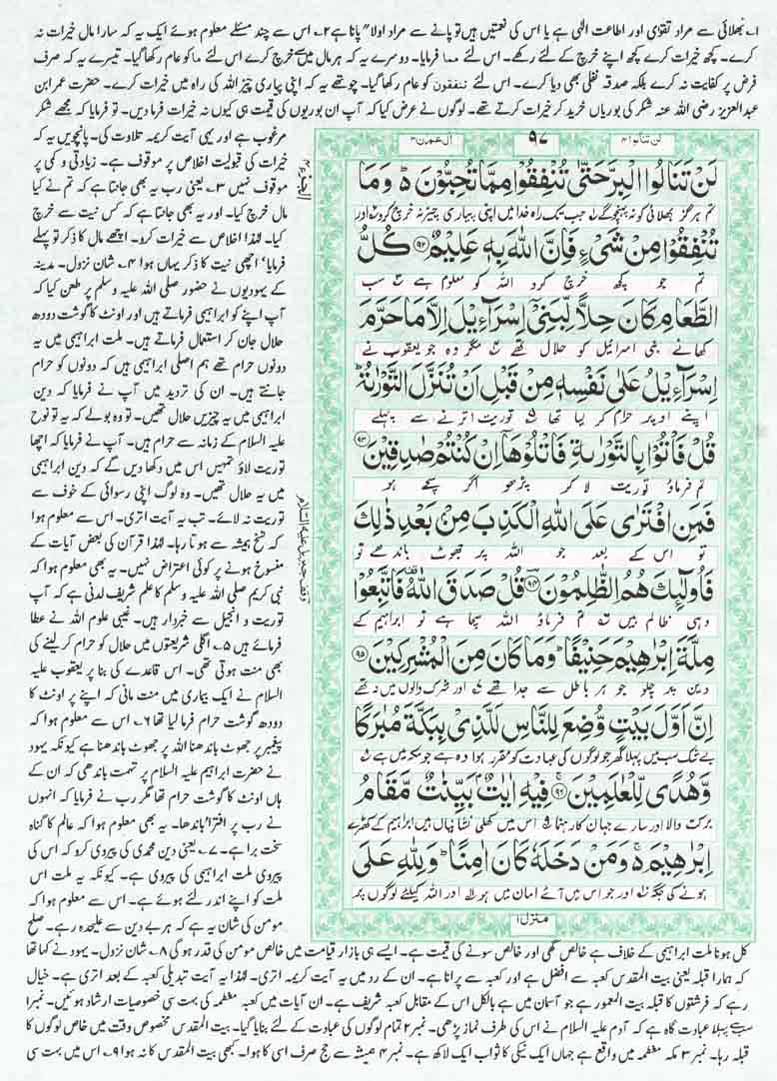 ۱۔ بھلائی سے مراد تقویٰ اور اطاعت الٰہی ہے یا اس کی نعمتیں ہیں تو پانے سے مراد اولا" پانا ہے ۲۔ اس سے چند مسئلے معلوم ہوئے ایک یہ کہ سارا مال خیرات نہ
کرے۔ کچھ خیرات کرے کچھ اپنے خرچ کے لئے رکھے۔ اس لئے مما فرمایا۔ دوسرے یہ کہ ہر مال میں خرچ کرے اس لئے ما کو عام رکھا گیا۔ تیسرے یہ کہ صرف
فرض پر کفایت نہ کرے بلکہ صدقہ نفلی بھی دیا کرے۔ اس لئے تنفقون کو عام رکھا گیا۔ چوتھے یہ کہ اپنی پیاری چیز اللہ کی راہ میں خیرات کرے۔ حضرت عمر ابن
عبدالعزیز رضی اللہ عنہ شکر کی بوریاں خرید کر خیرات کرتے تھے۔ لوگوں نے عرض کیا کہ آپ ان بوریوں کی قیمت ہی کیوں نہ خیرات فرما دیں۔ تو فرمایا کہ مجھے شکر
لن تنالوا ۴
۹۷
ال عمرن ۳
لَنْ تَنَالُوا الْبِرَّ حَتّٰى تُنْفِقُوْا مِمَّا تُحِبُّوْنَ ؕ وَمَا
تم ہرگز بھلائی کو نہ پہنچو گے جب تک راہ خدا میں اپنی پیاری چیز نہ خرچ کرو اور
تُنْفِقُوْا مِنْ شَيْءٍ فَاِنَّ اللّٰهَ بِهٖ عَلِيْمٌ ﴿۹۲﴾ كُلُّ
تم جو کچھ خرچ کرو اللہ کو معلوم ہے سب
الطَّعَامِ كَانَ حِلًّا لِّبَنِيْۤ اِسْرَآءِيْلَ اِلَّا مَا حَرَّمَ
کھانے بنی اسرائیل کو حلال تھے مگر وہ جو یعقوب نے
اِسْرَآءِيْلُ عَلٰى نَفْسِهٖ مِنْ قَبْلِ اَنْ تُنَزَّلَ التَّوْرٰىةُ ؕ
اپنے اوپر حرام کر لیا تھا توریت اترنے سے پہلے
قُلْ فَاْتُوْا بِالتَّوْرٰىةِ فَاتْلُوْهَاۤ اِنْ كُنْتُمْ صٰدِقِيْنَ ﴿۹۳﴾
تم فرماؤ توریت لا کر پڑھو اگر سچے ہو
فَمَنِ افْتَرٰى عَلَى اللّٰهِ الْكَذِبَ مِنْ بَعْدِ ذٰلِكَ
تو اس کے بعد جو اللہ پر جھوٹ باندھے تو
فَاُولٰٓئِكَ هُمُ الظّٰلِمُوْنَ ﴿۹۴﴾ قُلْ صَدَقَ اللّٰهُ فَاتَّبِعُوْا
وہی ظالم ہیں تم فرماؤ اللہ سچا ہے تو ابراہیم کے
مِلَّةَ اِبْرٰهِيْمَ حَنِيْفًا ؕ وَمَا كَانَ مِنَ الْمُشْرِكِيْنَ ﴿۹۵﴾
دین پر چلو جو ہر باطل سے جدا تھے اور شرک والوں میں نہ تھے
اِنَّ اَوَّلَ بَيْتٍ وُّضِعَ لِلنَّاسِ لَلَّذِيْ بِبَكَّةَ مُبٰرَكًا
بے شک سب میں پہلا گھر جو لوگوں کی عبادت کو مقرر ہوا وہ ہے جو مکہ میں ہے
وَّهُدًى لِّلْعٰلَمِيْنَ ﴿۹۶﴾ فِيْهِ اٰيٰتٌۢ بَيِّنٰتٌ مَّقَامُ
برکت والا اور سارے جہان کا رہنما اس میں کھلی نشانیاں ہیں ابراہیم کے کھڑے
اِبْرٰهِيْمَ ۚ وَمَنْ دَخَلَهٗ كَانَ اٰمِنًا ؕ وَلِلّٰهِ عَلَى
ہونے کی جگہ اور جو اس میں آئے امان میں ہو اور اللہ کیلئے لوگوں پر
منزل ۱
وقف جبریل علیہ السلام
مرغوب ہے اور یہی آیت کریمہ تلاوت کی۔ پانچویں یہ کہ
خیرات کی قبولیت اخلاص پر موقوف ہے۔ زیادتی و کمی پر
موقوف نہیں ۳۔ یعنی رب یہ بھی جانتا ہے کہ تم نے کیا
مال خرچ کیا۔ اور یہ بھی جانتا ہے کہ کس نیت سے خرچ
کیا۔ لہٰذا اخلاص سے خیرات کرو۔ اچھے مال کا ذکر تو پہلے
فرمایا' اچھی نیت کا ذکر یہاں ہوا ۴۔ شان نزول۔ مدینہ
کے یہودیوں نے حضور صلی اللہ علیہ وسلم پر طعن کیا کہ
آپ اپنے کو ابراہیمی فرماتے ہیں اور اونٹ کا گوشت دودھ
حلال جان کر استعمال فرماتے ہیں۔ ملت ابراہیمی میں یہ
دونوں حرام تھے ہم اصلی ابراہیمی ہیں کہ دونوں کو حرام
جانتے ہیں۔ ان کی تردید میں آپ نے فرمایا کہ دین
ابراہیمی میں یہ چیزیں حلال تھیں۔ تو وہ بولے کہ یہ تو نوح
علیہ السلام کے زمانہ سے حرام ہیں۔ آپ نے فرمایا کہ اچھا
توریت لاؤ تمہیں اس میں دکھا دیں گے کہ دین ابراہیمی
میں یہ حلال تھیں۔ وہ لوگ اپنی رسوائی کے خوف سے
توریت نہ لائے۔ تب یہ آیت اتری۔ اس سے معلوم ہوا
کہ نسخ ہمیشہ سے ہوتا رہا۔ لہٰذا قرآن کی بعض آیات کے
منسوخ ہونے پر کوئی اعتراض نہیں۔ یہ بھی معلوم ہوا کہ
نبی کریم صلی اللہ علیہ وسلم کا علم شریف لدنی ہے کہ آپ
توریت و انجیل سے خبردار ہیں۔ غیبی علوم اللہ نے عطا
فرمائے ہیں ۵۔ اگلی شریعتوں میں حلال کو حرام کر لینے کی
بھی منت ہوتی تھی۔ اس قاعدے کی بنا پر یعقوب علیہ
السلام نے ایک بیماری میں منت مانی کہ اپنے پر اونٹ کا
دودھ گوشت حرام فرما لیا تھا ۶۔ اس سے معلوم ہوا کہ
پیغمبر پر جھوٹ باندھنا اللہ پر جھوٹ باندھنا ہے کیونکہ یہود
نے حضرت ابراہیم علیہ السلام پر تہمت باندھی کہ ان کے
ہاں اونٹ کا گوشت حرام تھا مگر رب نے فرمایا کہ انہوں
نے رب پر افترا' باندھا۔ یہ بھی معلوم ہوا کہ عالم کا گناہ
سخت برا ہے۔ ۷۔ یعنی دین محمدی کی پیروی کرو کہ اس کی
پیروی ملت ابراہیمی کی پیروی ہے۔ کیونکہ یہ ملت اس
ملت کو اپنے اندر لئے ہوئے ہے۔ اس سے معلوم ہوا کہ
مومن کی شان یہ ہے کہ ہر بے دین سے علیحدہ رہے۔ صلح
کل ہونا ملت ابراہیمی کے خلاف ہے خالص گھی اور خالص سونے کی قیمت ہے۔ ایسے ہی بازار قیامت میں خالص مومن کی قدر ہو گی ۸۔ شان نزول۔ یہود نے کہا تھا
کہ ہمارا قبلہ یعنی بیت المقدس کعبہ سے افضل ہے اور کعبہ سے پرانا ہے۔ ان کے رد میں یہ آیت کریمہ اتری۔ لہٰذا یہ آیت تبدیلی کعبہ کے بعد اتری ہے۔ خیال
رہے کہ فرشتوں کا قبلہ بیت المعمور ہے جو آسمان میں ہے بالکل اس کے مقابل کعبہ شریف ہے۔ ان آیات میں کعبہ معظمہ کی بہت سی خصوصیات ارشاد ہوئیں۔ نمبر۱
سب سے پہلا عبادت گاہ ہے کہ آدم علیہ السلام نے اس کی طرف نماز پڑھی۔ نمبر ۲ تمام لوگوں کی عبادت کے لئے بنایا گیا۔ بیت المقدس مخصوص وقت میں خاص لوگوں کا
قبلہ رہا۔ نمبر ۳ مکہ معظمہ میں واقع ہے جہاں ایک نیکی کا ثواب ایک لاکھ ہے۔ نمبر ۴ ہمیشہ سے حج صرف اسی کا ہوا۔ کبھی بیت المقدس کا نہ ہوا ۹۔ اس میں بہت سی